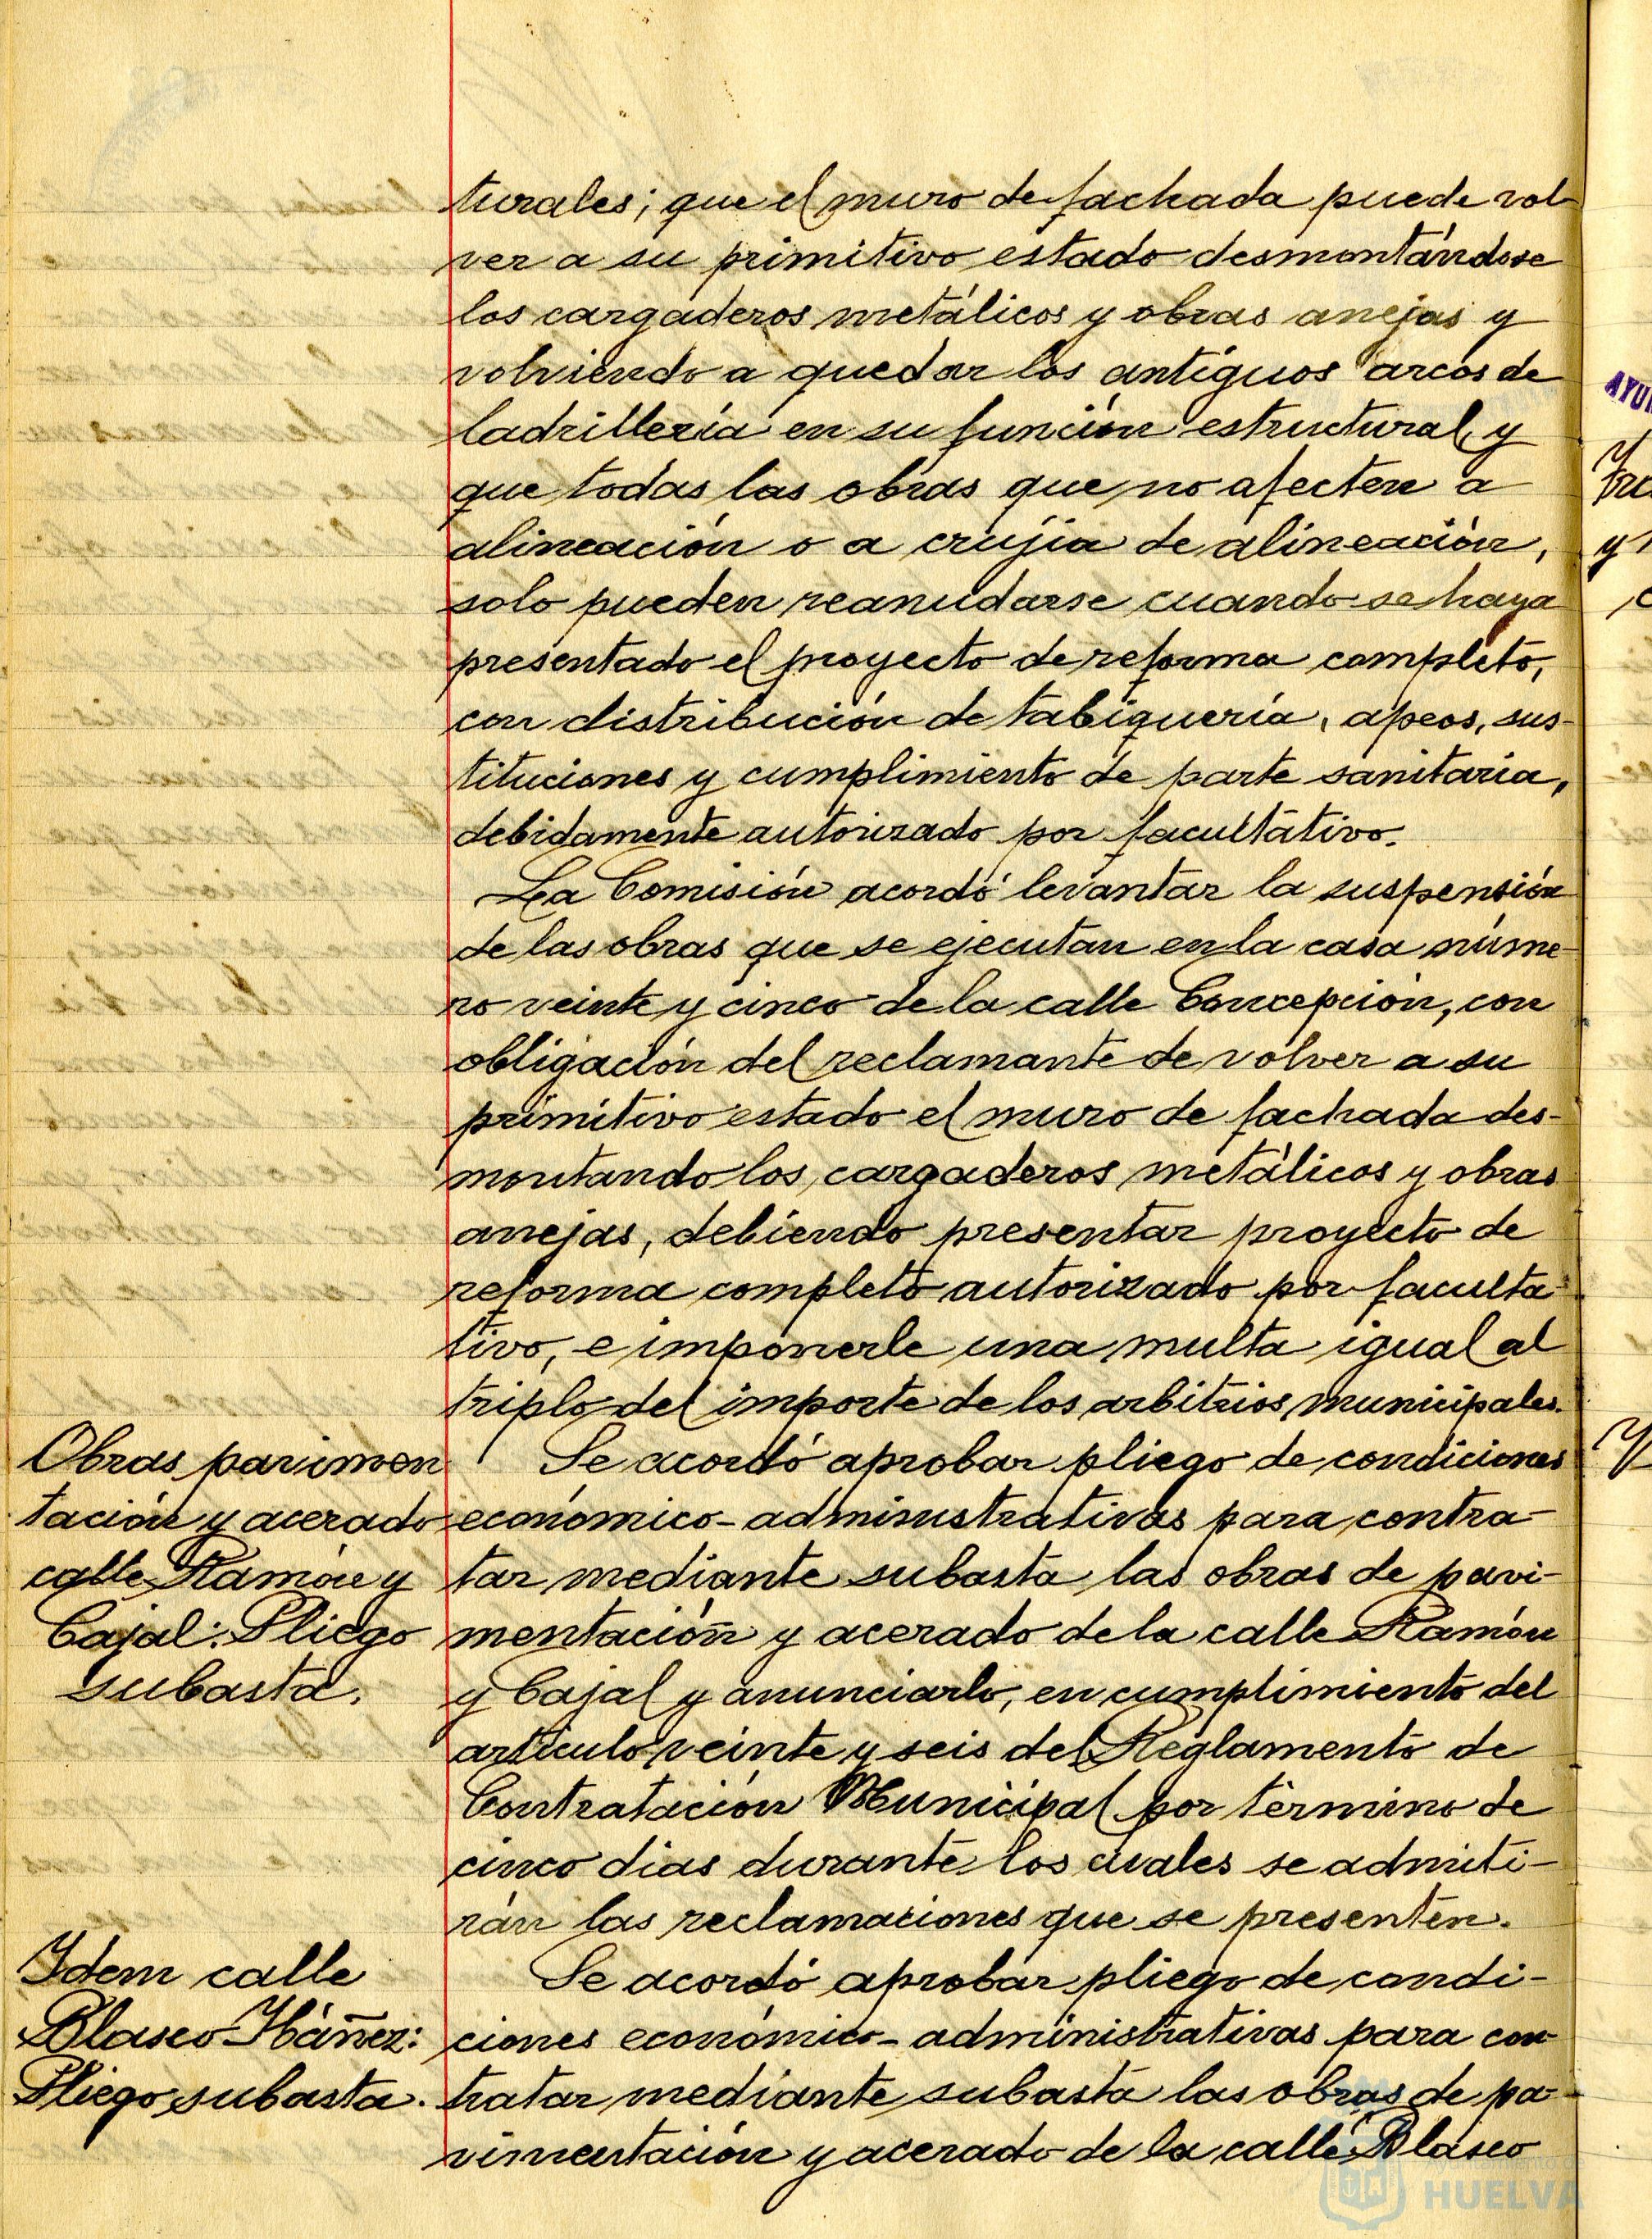 turales; que el muro de fachada puede vol-
ver a su primitivo estado desmontándose
los cargaderos metálicos y obras anejas y
volviendo a quedar los antíguos arcos de
ladrillería en su función estructural, y
que todas las obras que no afecten a
alineación o a crujía de alineación,
solo pueden reanudarse cuando se haya
presentado el proyecto de reforma completo,
con distribución de tabiquería, apeos, sus-
tituciones y cumplimiento de parte sanitaria,
debidamente autorizado por facultativo.
La Comisión acordó levantar la suspensión
de las obras que se ejecutan en la casa núme-
ro veinte y cinco de la calle Concepción, con
obligación del reclamante de volver a su
primitivo estado el muro de fachada des-
montando los cargaderos metálicos y obras
anejas, debiendo presentar proyecto de
reforma completo autorizado por faculta-
tivo, e imponerle una multa igual al
triplo del importe de los arbitrios municipales.
Obras pavimen
tación y acerado
calle Ramón y
Cajal: Pliego
subasta.
Se acordó aprobar pliego de condiciones
económico-administrativas para contra-
tar mediante subasta las obras de pavi-
mentación y acerado de la calle Ramón
y Cajal y anunciarlo, en cumplimiento del
artículo veinte y seis del Reglamento de
Contratación Municipal por término de
cinco dias durante los cuales se admiti-
rán las reclamaciones que se presenten.
Idem calle
Blasco Ibáñez:
Pliego subasta.
Se acordó aprobar pliego de condi-
ciones económico-administrativas para con-
tratar mediante subasta las obras de pa-
vimentación y acerado de la calle Blasco
HUELVA